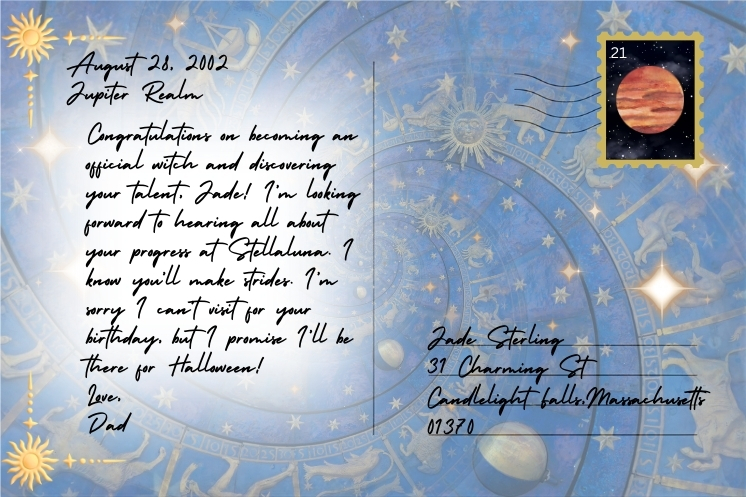 August 28, 2002
Jupiter Realm
Congratulations on becoming an
official witch and discovering
your talent, Jade! I'm looking
forward to hearing all about
your progress at Stellaluna. I
know you'll make strides. I'm
sorry I can't visit for your
birthday, but I promise I'll be
there for Halloween!
Love,
Dad
21
Jade Sterling
31 Charming St
Candlelight falls,Massachusetts
01370